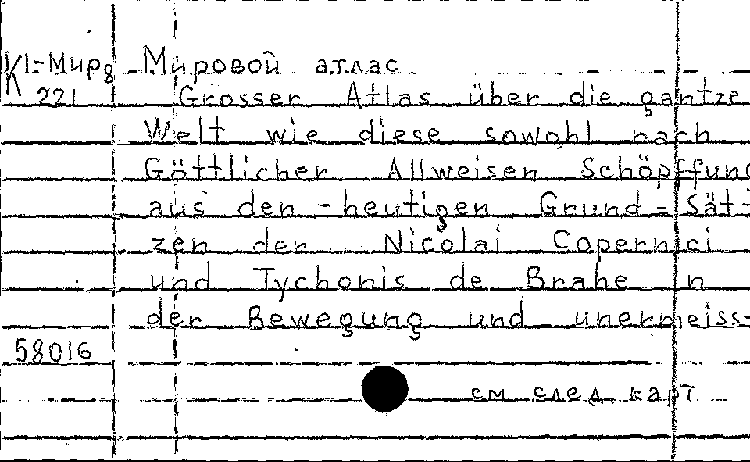 К1-Мир 8 Мировой атлас
221 Grosser Atlas über die gantze
Welt wie diese sowohl nach
Göttlicher Allweisen Schöpffung
aus den heutigen Grund=Sät-
zen der Nicolai Copernici
und Tychonis de Brahe n
der Bewegung und unermeiss-
58016
см след карт